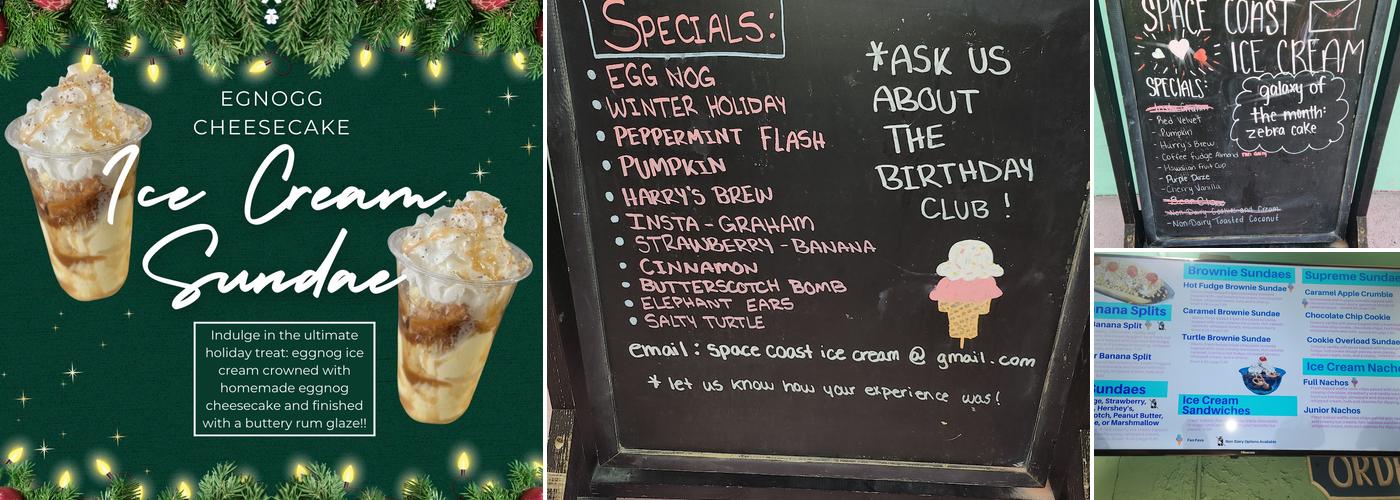 EGNOGG
CHEESECAKE
Ice Cream
Sundae
Indulge in the ultimate
holiday treat: eggnog ice
cream crowned with
homemade eggnog
cheesecake and finished
with a buttery rum glaze!!
SPECIALS:
EGG NOG
WINTER HOLIDAY
PEPPERMINT FLASH
PUMPKIN
HARRY'S BREW
INSTA-GRAHAM
STRAWBERRY-BANANA
CINNAMON
BUTTERSCOTCH BOMB
ELEPHANT EARS
SALTY TURTLE
*ASK US
ABOUT
THE
BIRTHDAY
CLUB!
email: space coast ice cream @ gmail.com
* let us know how your experience was!
SPACE COAST
ICE CREAM
SPECIALS:
- Red Velvet
- Pumpkin
- Harry's Brew
- Coffee Fudge Almond
- Hawaiian Fruit Cup
- Purple Daze
- Cherry Vanilla
- Non-Dairy Cookies and Cream
- Non-Dairy Toasted Coconut
galaxy of
the month:
zebra cake
nana Splits
Banana Split
r Banana Split
Sundaes
ge, Strawberry,
, Hershey's,
otch, Peanut Butter,
e, or Marshmallow
Brownie Sundaes
Hot Fudge Brownie Sundae
Caramel Brownie Sundae
Turtle Brownie Sundae
Ice Cream
Sandwiches
Fan Favs
Non Dairy Options Available
Supreme Sundae
Caramel Apple Crumble
Chocolate Chip Cookie
Cookie Overload Sundae
Ice Cream Nacho
Full Nachos
Junior Nachos
Hisense
ORD